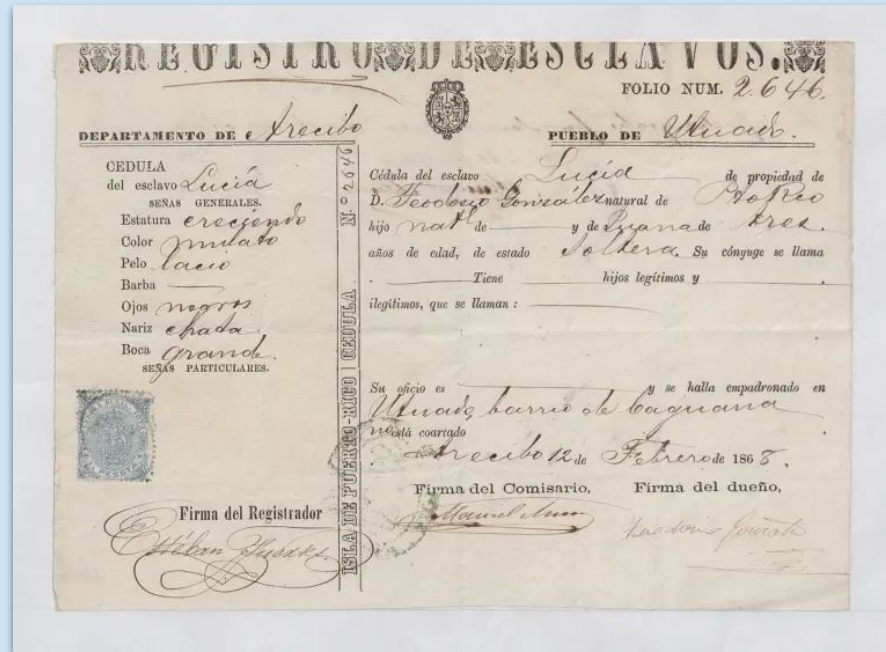 REGISTRO DE ESCLAVOS.
FOLIO NUM. 2.646.
DEPARTAMENTO DE Arecibo
PUEBLO DE Utuado.
CEDULA
del esclavo Lucía
SEÑAS GENERALES.
Estatura creciendo
Color mulato
Pelo lacio
Barba —
Ojos negros
Nariz chata
Boca grande.
SEÑAS PARTICULARES.
Firma del Registrador
Estéban
ISLA DE PUERTO-RICO | CEDULA N.º 2646
Cédula del esclavo Lucía de propiedad de
D. Teodosio González natural de Pto Rico
hijo natl de — y de Juana de tres
años de edad, de estado Soltera. Su cónyuge se llama
. — Tiene — hijos legítimos y —
ilegítimos, que se llaman : —
Su oficio es — y se halla empadronado en
Utuado, barrio de Caguana
no está coartado
Arecibo 12 de Febrero de 1868.
Firma del Comisario, Firma del dueño,
Manuel
González